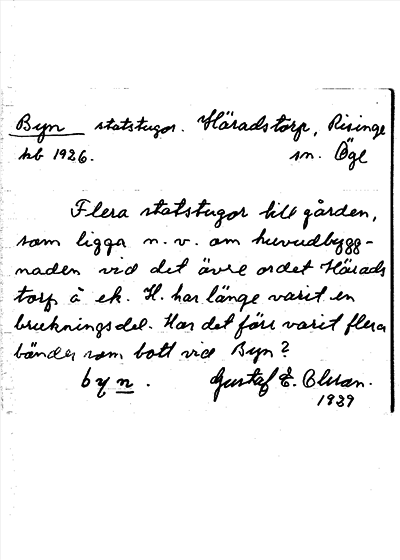 Byn statstugor. Häradstorp, Risinge
hb 1926. sn. Ögl
Flera statstugor till gården,
som ligga n. v. om huvudbygg-
naden vid det övre ordet Härads
torp å ek. H. har länge varit en
brukningsdel. Har det förr varit flera
bönder som bott vid Byn?
byn. Gustaf E. Olsson.
1939